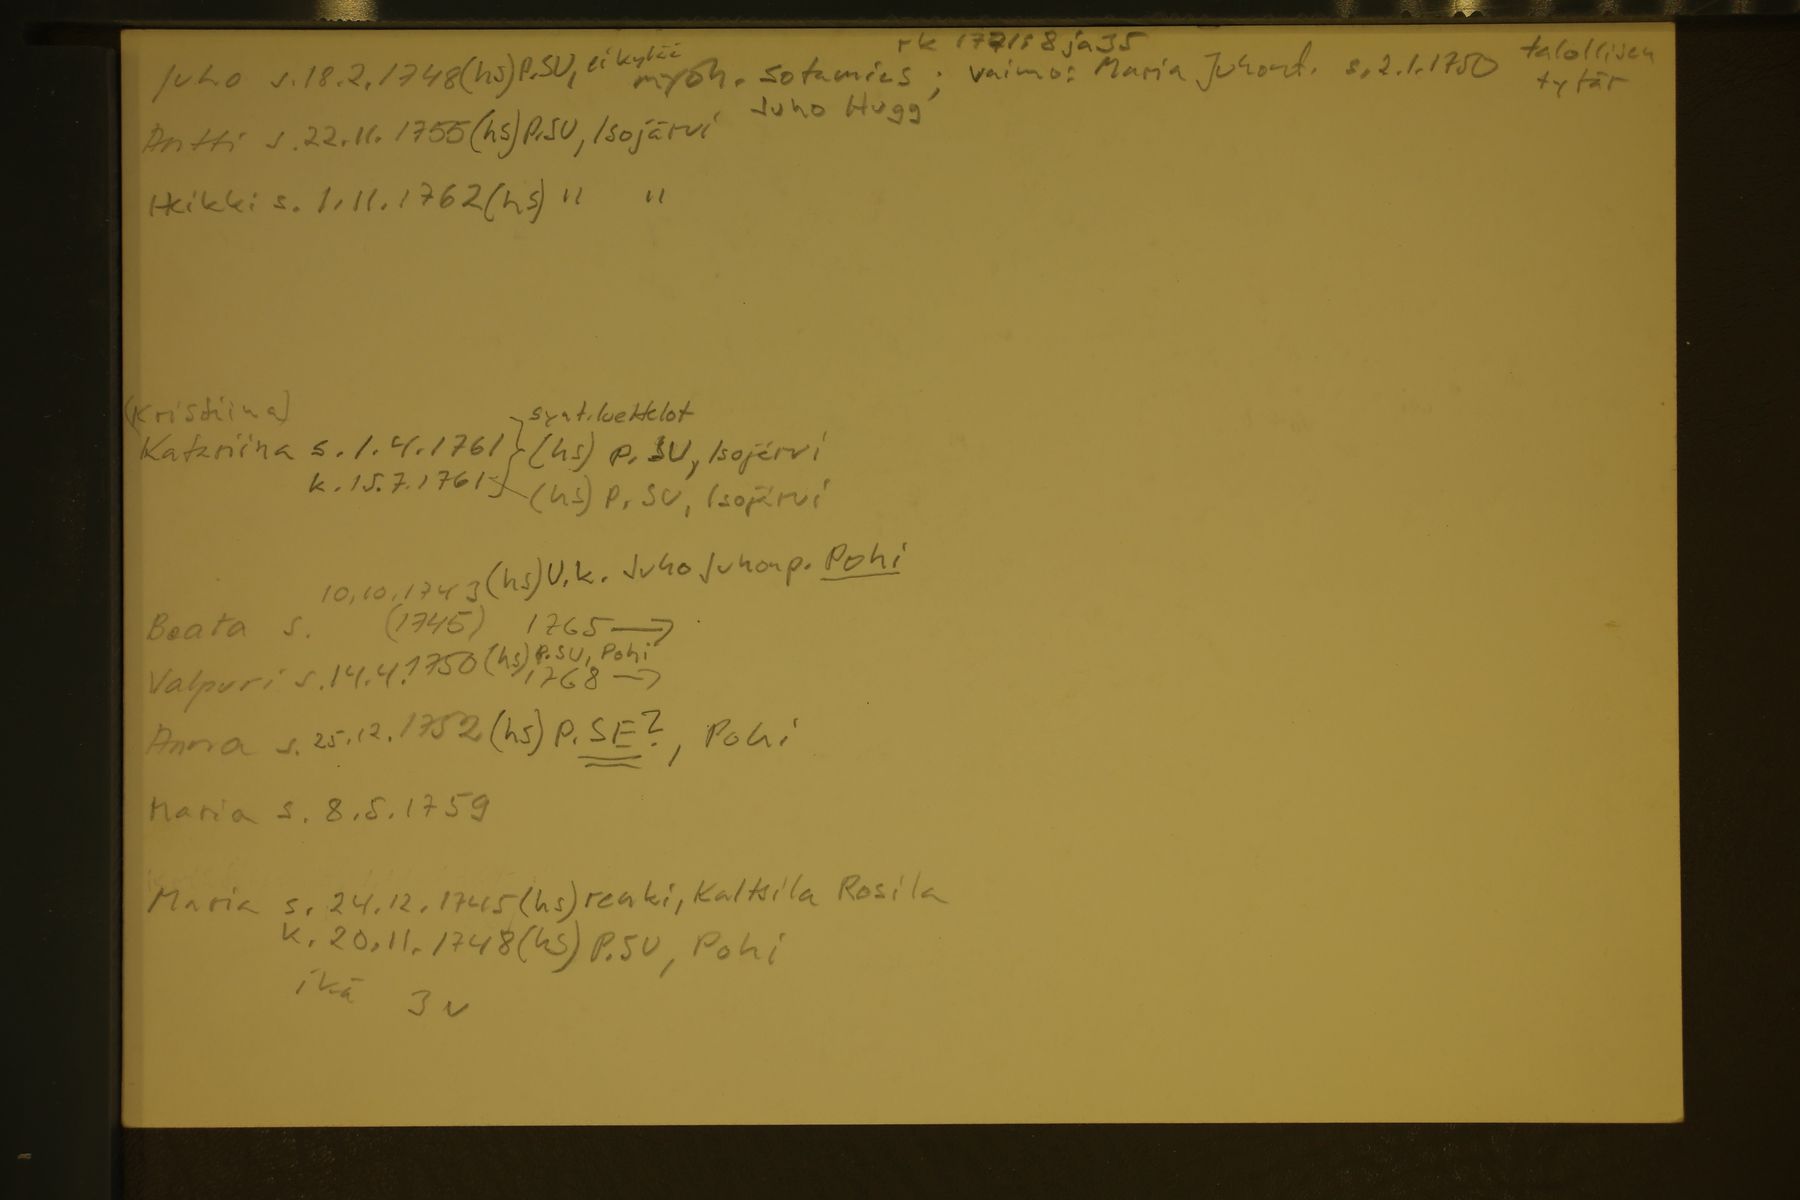 rk 1771: 8 ja 35
Juho s. 18.2.1748 (hs) P.SU, ei kylää myöh. sotamies; vaimo: Maria Juhont. s. 2.1.1750 talollisen tytär
Juho Hugg
Antti s. 22.11.1755 (hs) P.SU, Isojärvi
Heikki s. 1.11.1762 (hs) " "
(Kristiina) synt.luettelot
Katariina s. 1.4.1761 (hs) P.SU, Isojärvi
k. 15.7.1761 (hs) P.SU, Isojärvi
10.10.1743 (hs) U.k. Juho Juhonp. Pohi
Beata s. (1745) 1765 →
Valpuri s. 14.4.1750 (hs) P.SU, Pohi
1768 →
Anna s. 25.12.1752 (hs) P.SE?, Pohi
Maria s. 8.5.1759
Maria s. 24.12.1745 (hs) renki, Kaltsila Rosila
k. 20.11.1748 (hs) P.SU, Pohi
ikä 3 v